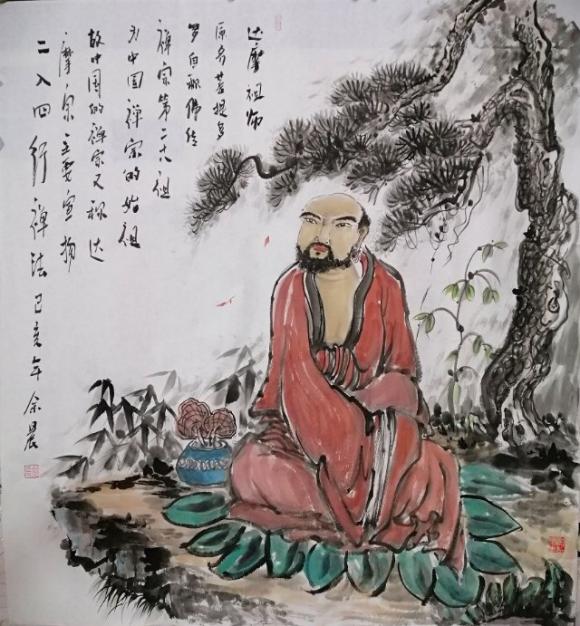 达摩祖师
原名菩提多
罗自称佛传
禅宗第二十八祖
为中国禅宗的始祖
故中国的禅宗又称达
摩宗主要宣扬
二入四行禅法己亥年余晨